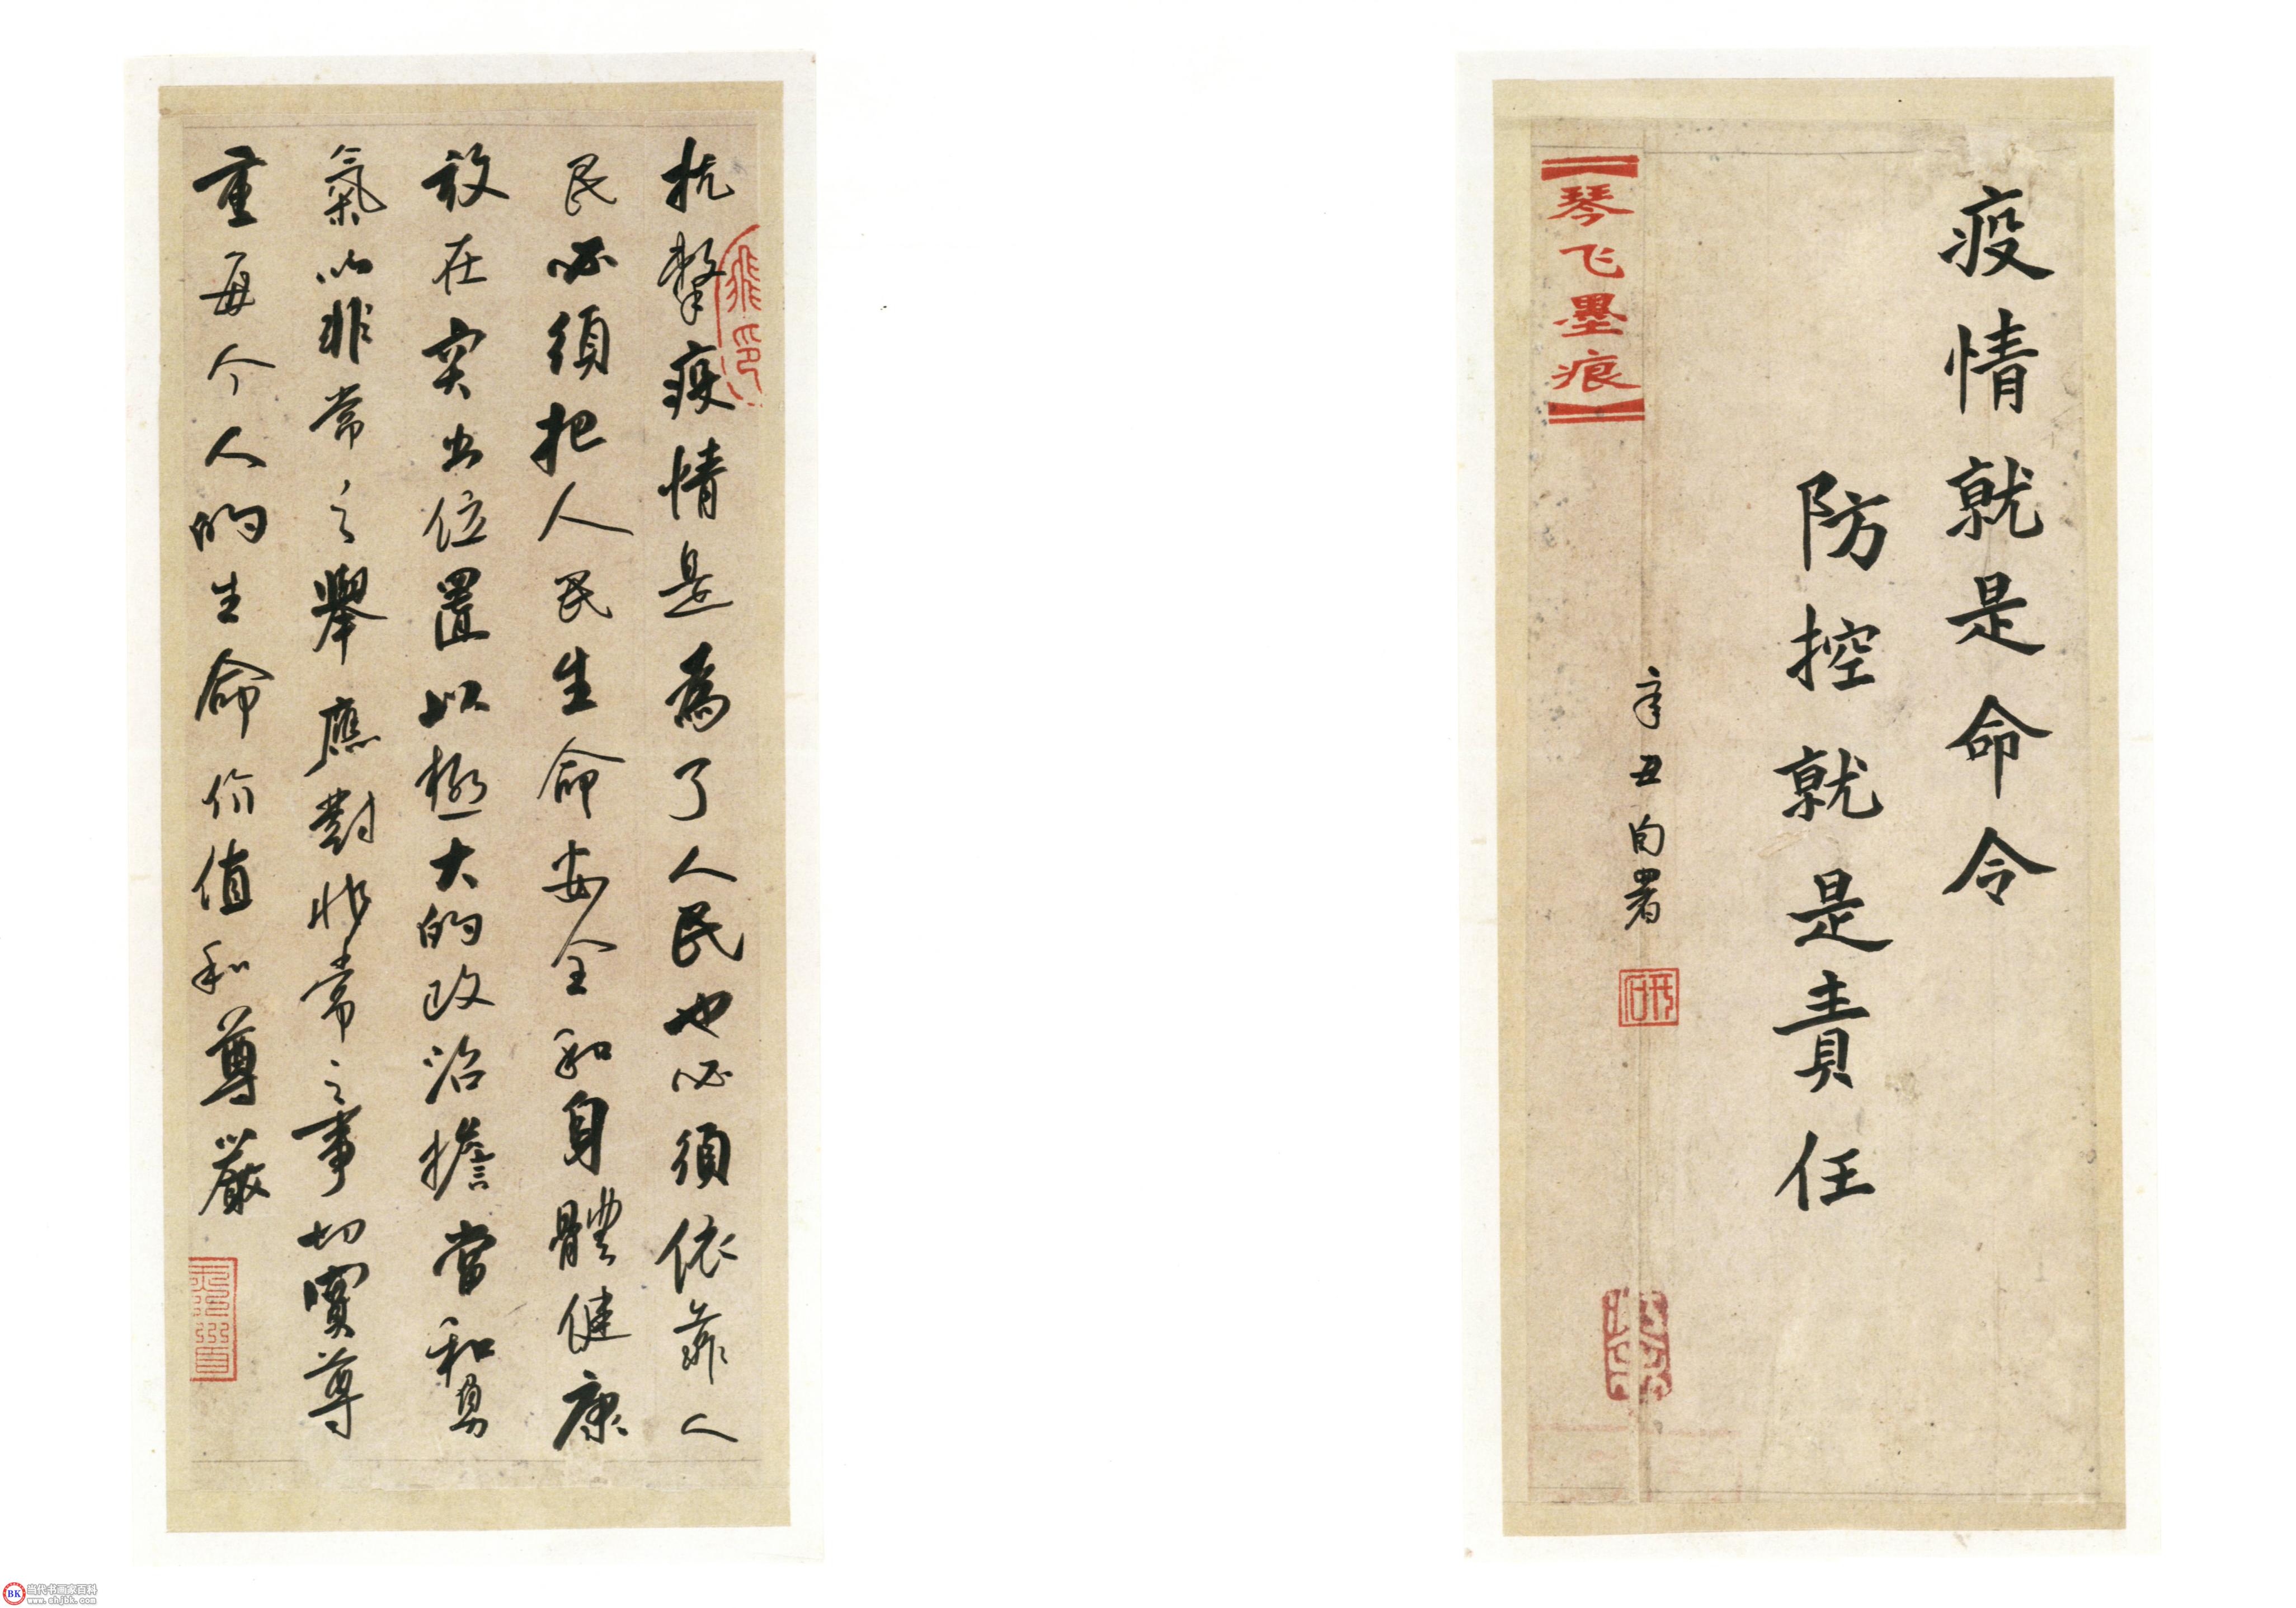 疫情就是命令
防控就是責任
辛丑 自署
【琴飞墨痕】
抗擊疫情是為了人民也必須依靠人
民必須把人民生命安全和身體健康
放在突出位置以極大的政治擔當和勇
氣以非常之舉應對非常之事切實尊
重每个人的生命价值和尊嚴
BK 当代书画家百科
www.shjbk.com